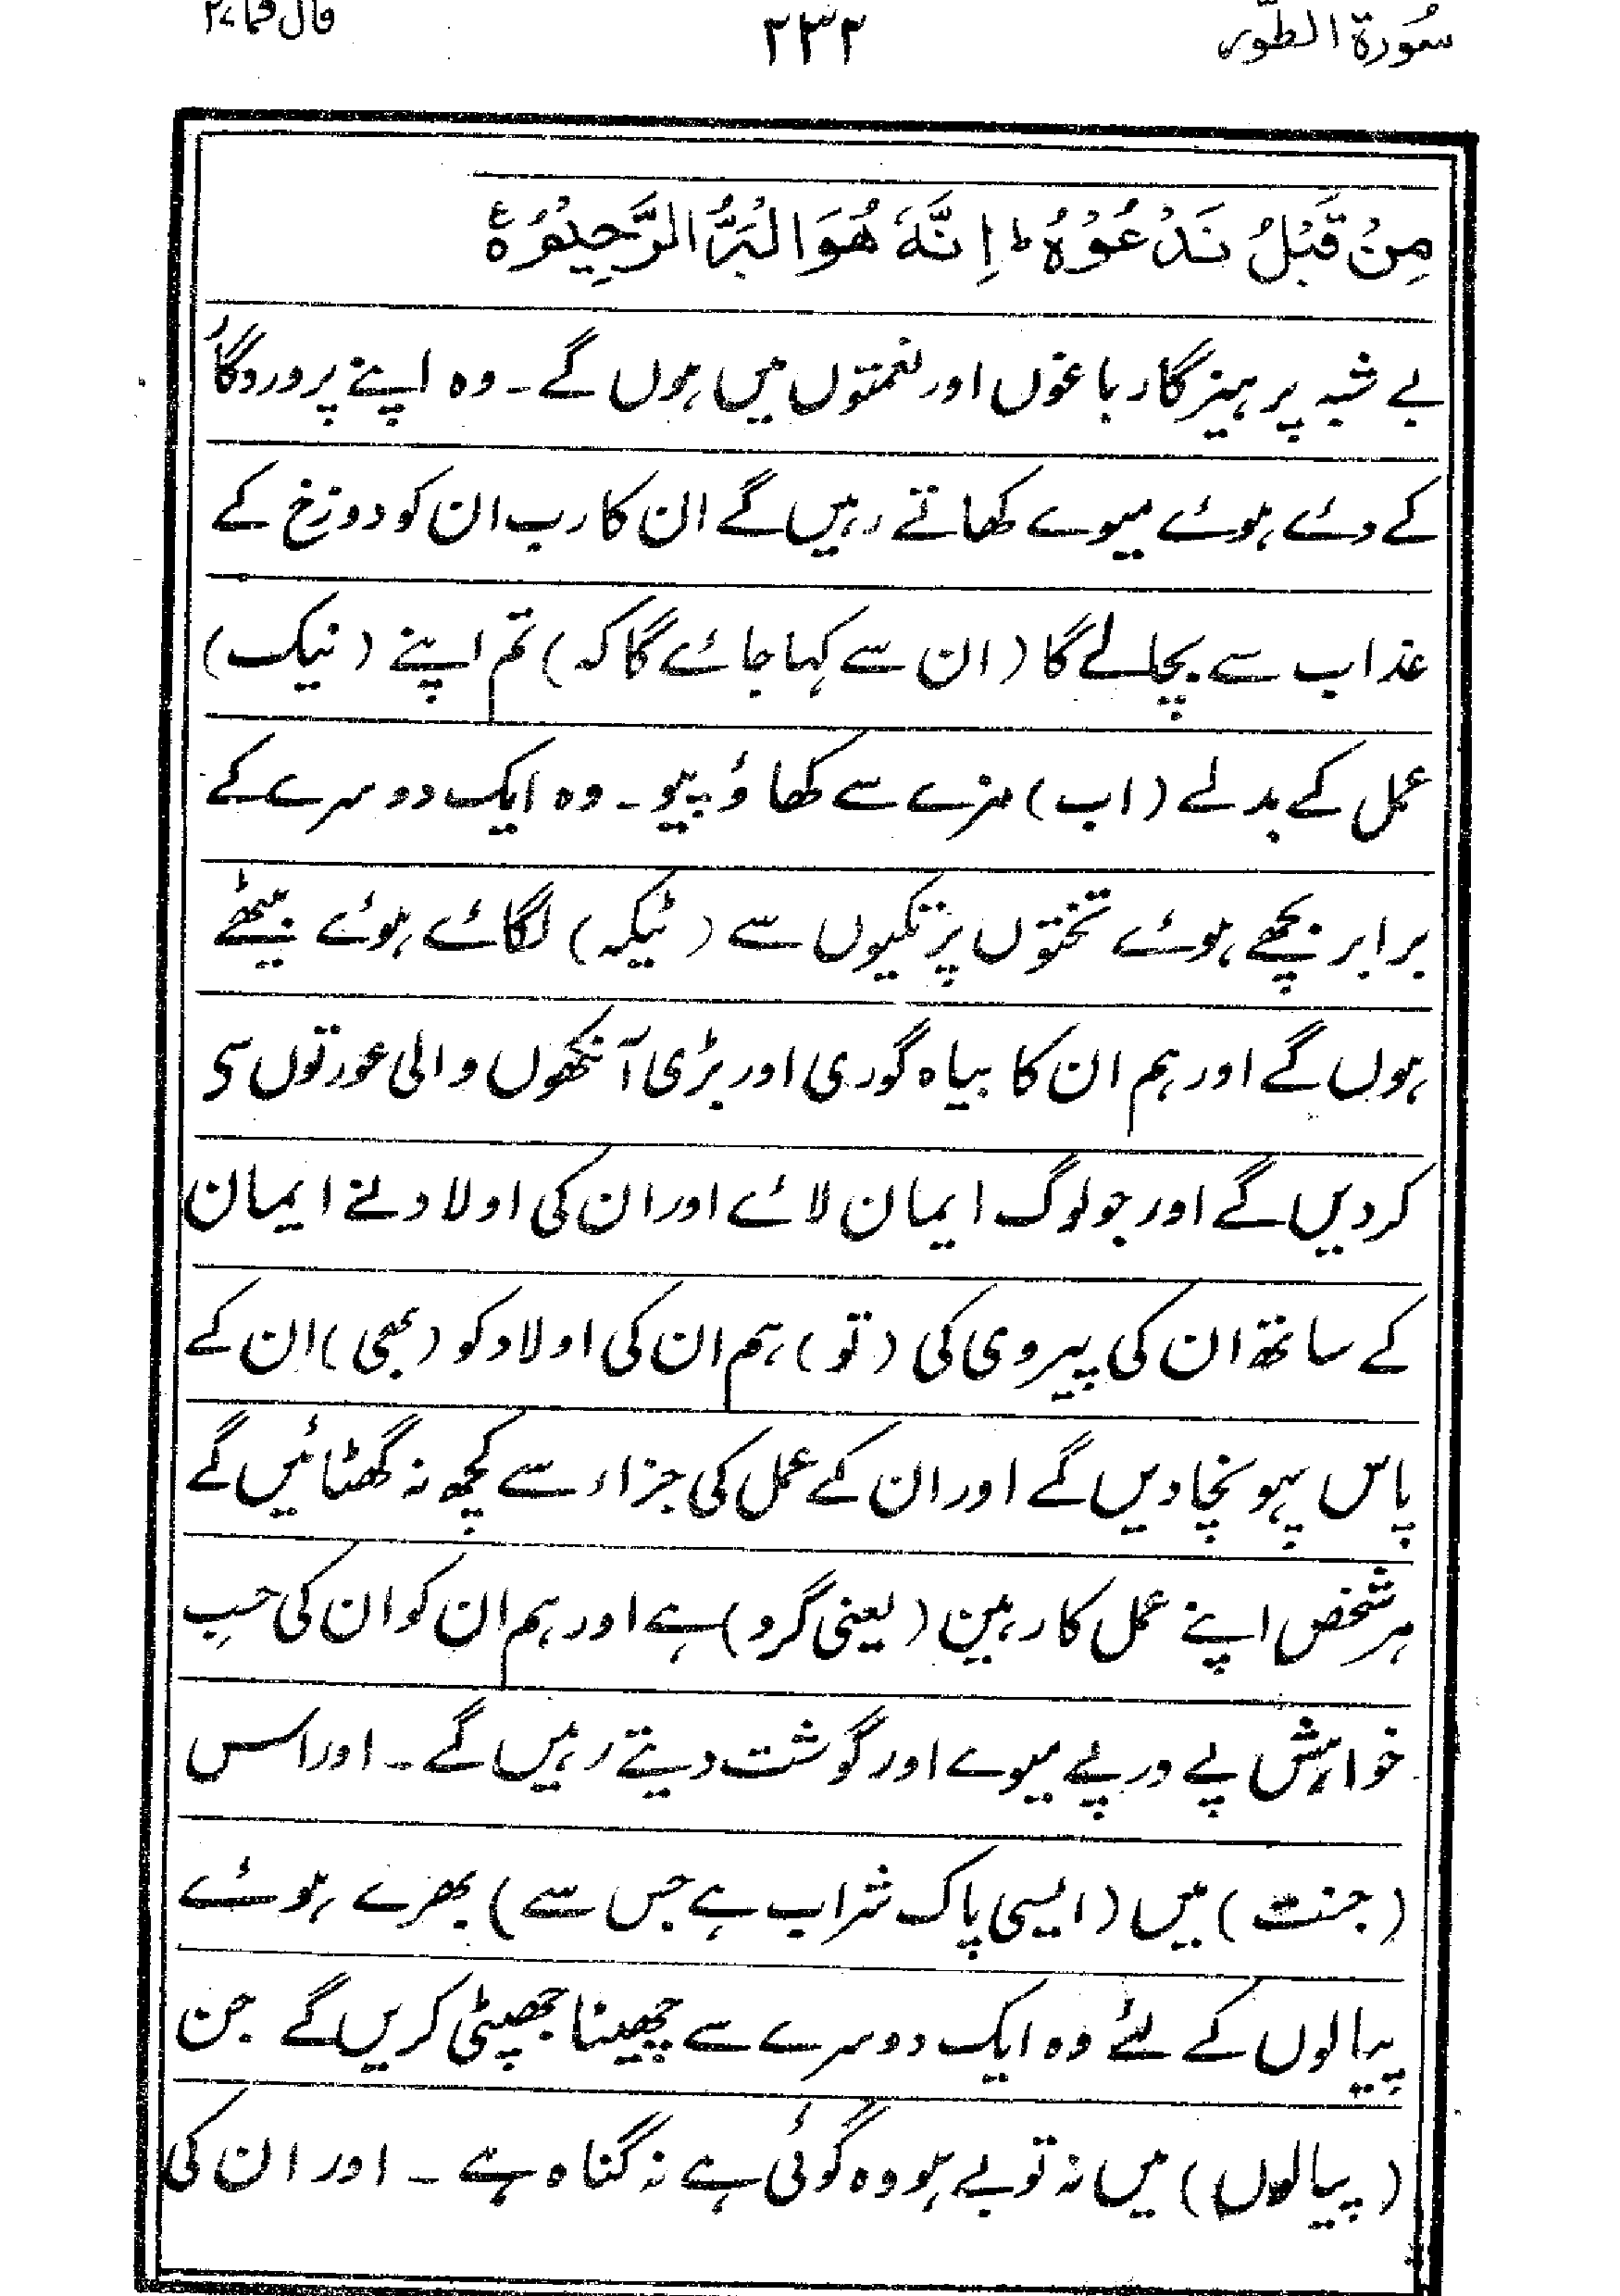 سُورة الطّور ۲۳۲ قال فما ۲۷
مِنْ قَبْلُ نَدْعُوْهُ ؕ اِنَّهٗ هُوَ الْبَرُّ الرَّحِيْمُ ۠
بے شبہ پرہیزگار باغوں اور نعمتوں میں ہوں گے ۔ وہ اپنے پروردگار
کے دئے ہوئے میوے کھاتے رہیں گے ان کا رب ان کو دوزخ کے
عذاب سے بچالے گا (ان سے کہا جائے گا کہ) تم اپنے (نیک)
عمل کے بدلے (اب) مزے سے کھاؤ پیو ۔ وہ ایک دوسرے کے
برابر بچھے ہوئے تختوں پر تکیوں سے (ٹیکہ) لگائے ہوئے بیٹھے
ہوں گے اور ہم ان کا بیاہ گوری اور بڑی آنکھوں والی عورتوں سی
کردیں گے اور جو لوگ ایمان لائے اور ان کی اولاد نے ایمان
کے ساتھ ان کی پیروی کی (تو) ہم ان کی اولاد کو (بھی) ان کے
پاس پہونچادیں گے اور ان کے عمل کی جزاء سے کچھ نہ گھٹائیں گے
ہر شخص اپنے عمل کا رہین (یعنی گرو) ہے اور ہم ان کو ان کی حسبِ
خواہش پے در پے میوے اور گوشت دیتے رہیں گے ۔ اور اس
(جنت) میں (ایسی پاک شراب ہے جس سے) بھرے ہوئے
پیالوں کے لئے وہ ایک دوسرے سے چھینا جھپٹی کریں گے جن
(پیالوں) میں نہ تو بے ہودہ گوئی ہے نہ گناہ ہے ۔ اور ان کی